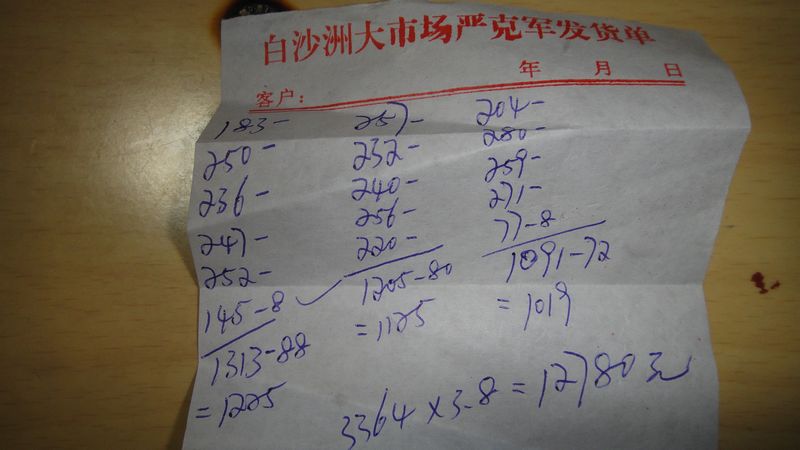 白沙洲大市场严克军发货单
年 月 日
客户：
183-
250-
236-
247-
252-
145-8
1313-88
=1225
257-
232-
240-
256-
220-
1205-80
=1125
204-
280-
259-
271-
77-8
1091-72
=1019
3364×3.8=12780